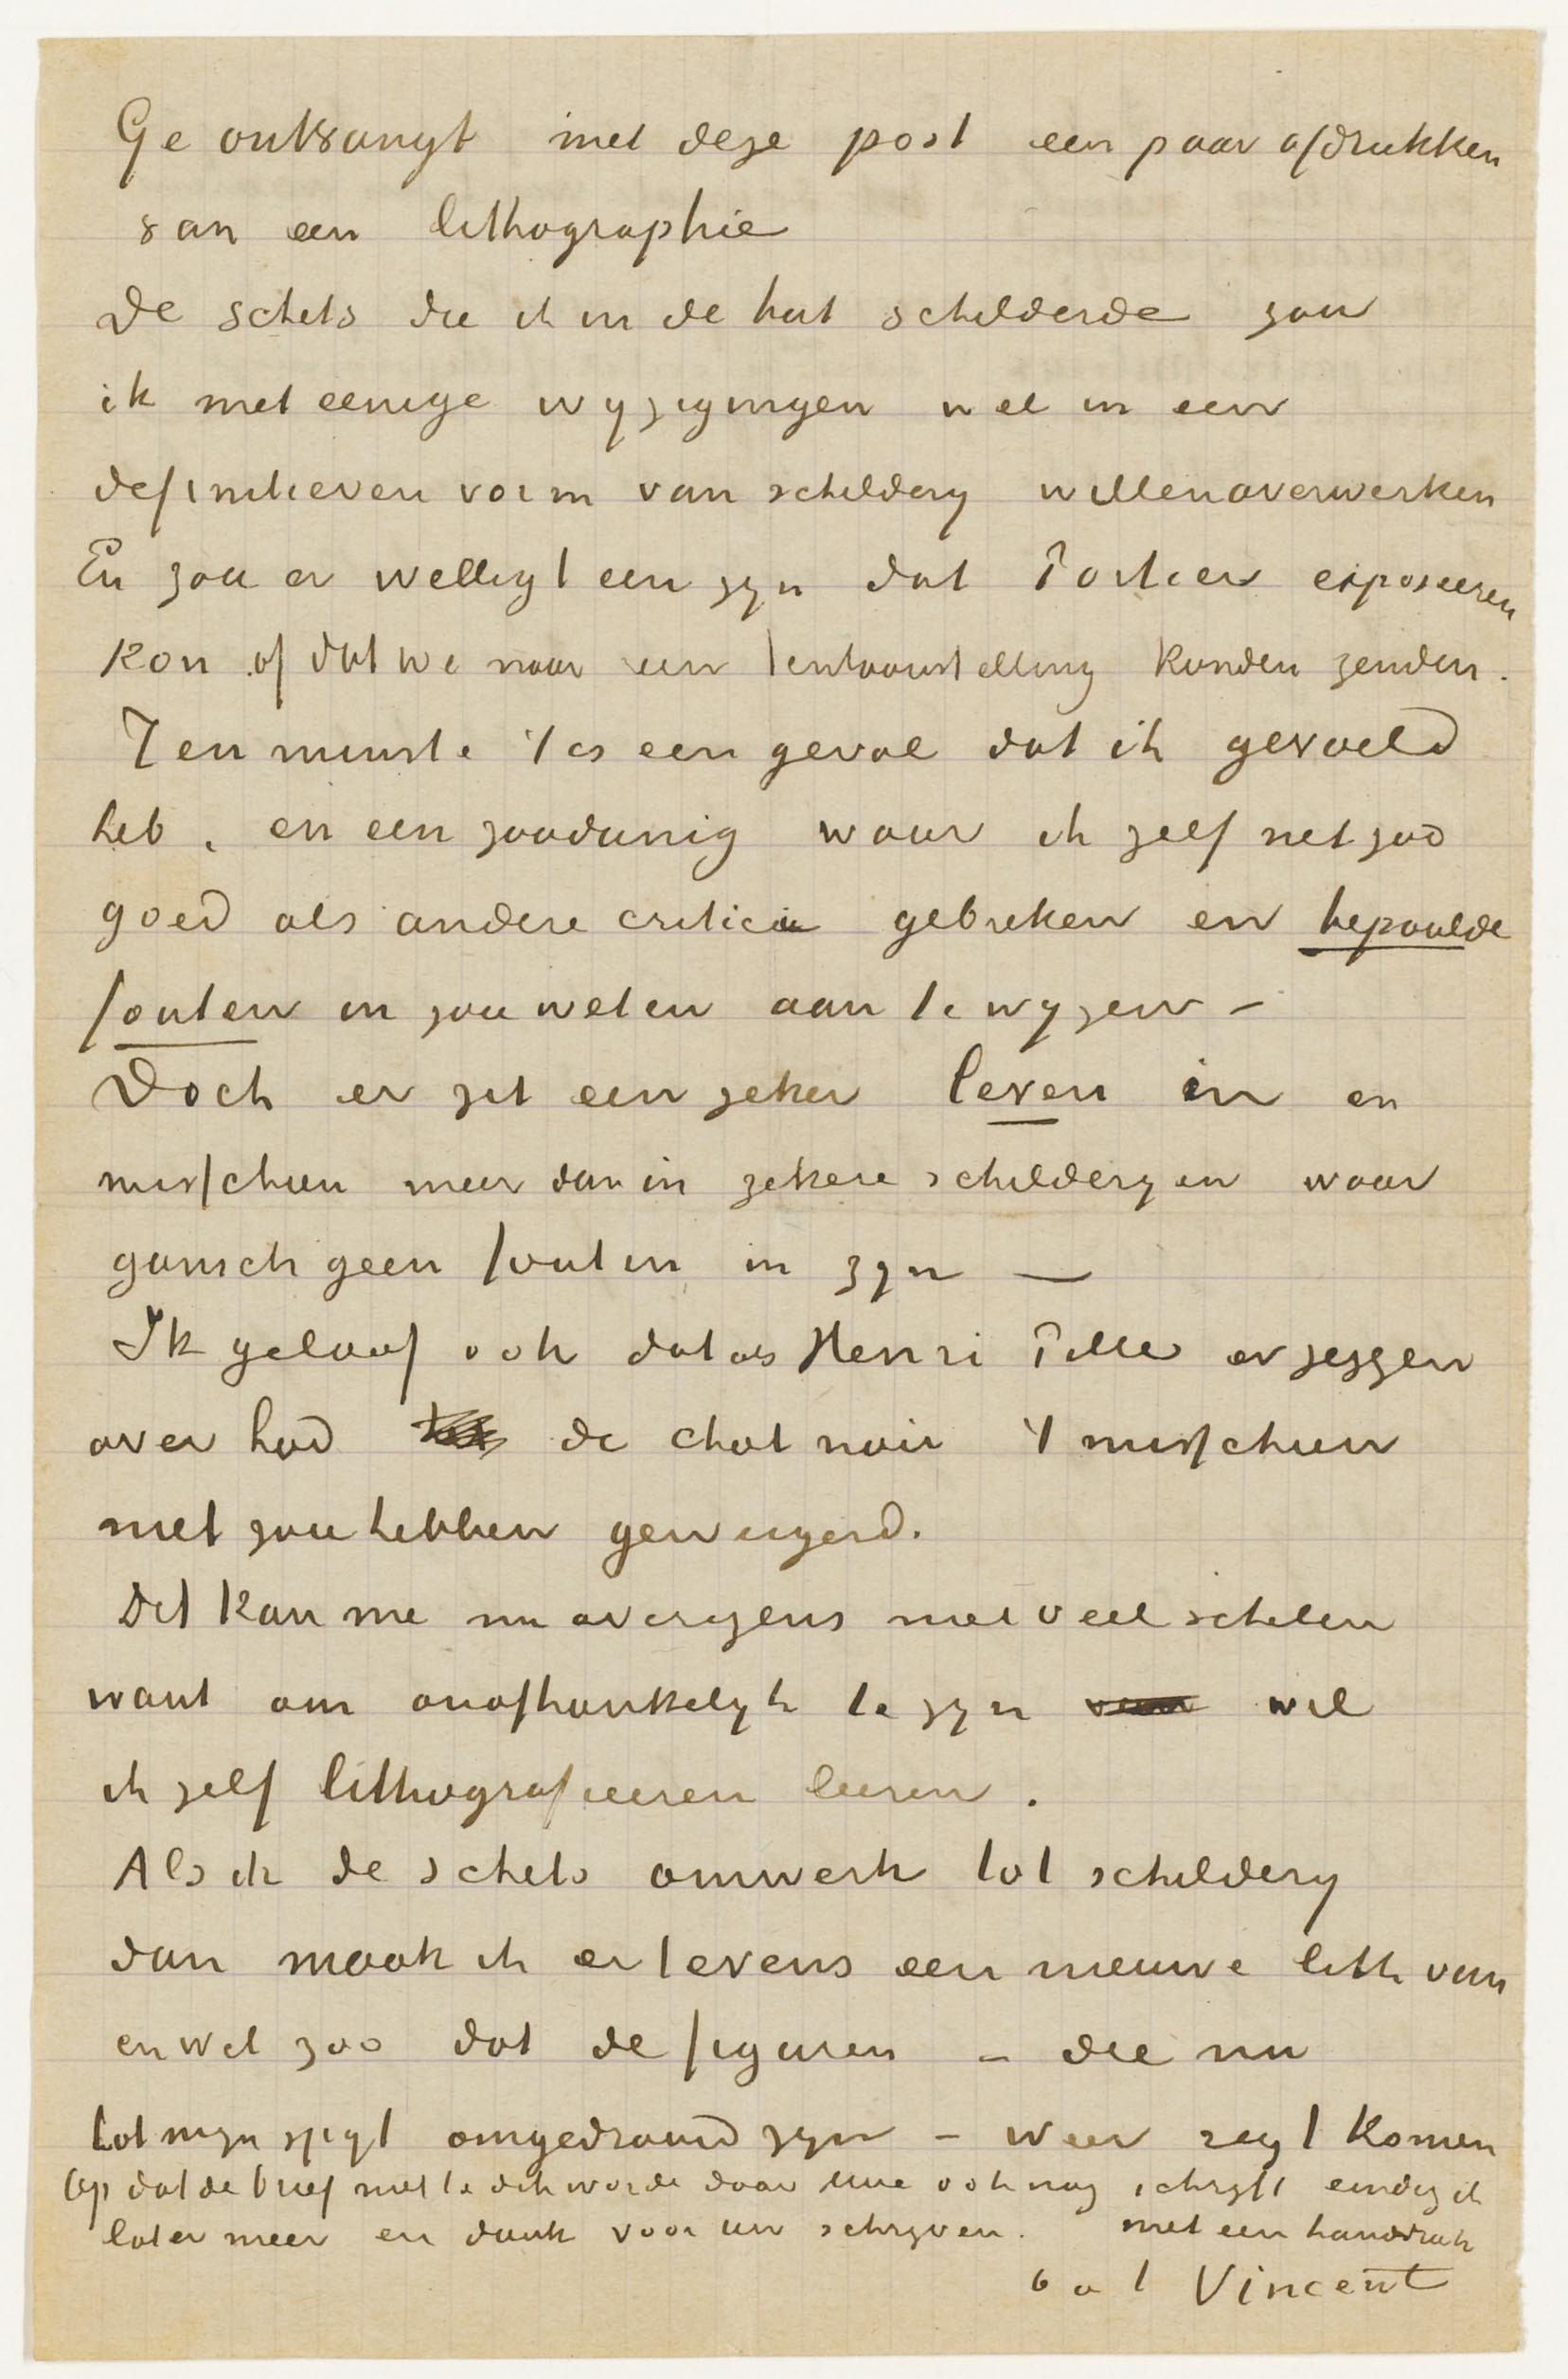 Ge ontvangt met deze post een paar afdrukken
van een lithographie
De schets die ik in de hut schilderde zou
ik met eenige wyzigingen wel in een
definitieven vorm van schildery willen overwerken
En zou er welligt een zyn dat Portier exposeeren
kon of dat we naar een tentoonstelling konden zenden.
Ten minste 't is een geval dat ik gevoeld
heb, en een zoodanig waar ik zelf net zoo
goed als andere critici gebreken en bepaalde
fouten in zou weten aan te wyzen –
Doch er zit een zeker leven in en
misschien meer dan in zekere schilderyen waar
gansch geen fouten in zyn —
Ik geloof ook dat as Henri Pille er zeggen
over had de chat noir 't misschien
niet zou hebben geweigerd.
Dit kan me nu overigens niet veel schelen
want om onafhankelyk te zyn wil
ik zelf lithografieeren leeren.
Als ik de schets omwerk tot schildery
dan maak ik er tevens een nieuwe lith van
en wel zoo dat de figuren – die nu
tot myn spyt omgedraaid zyn – weer regt komen
Op dat de brief niet te dik worde daar Moe ook nog schryft eindig ik
later meer en dank voor uw schryven. met een handdruk
b a t Vincent